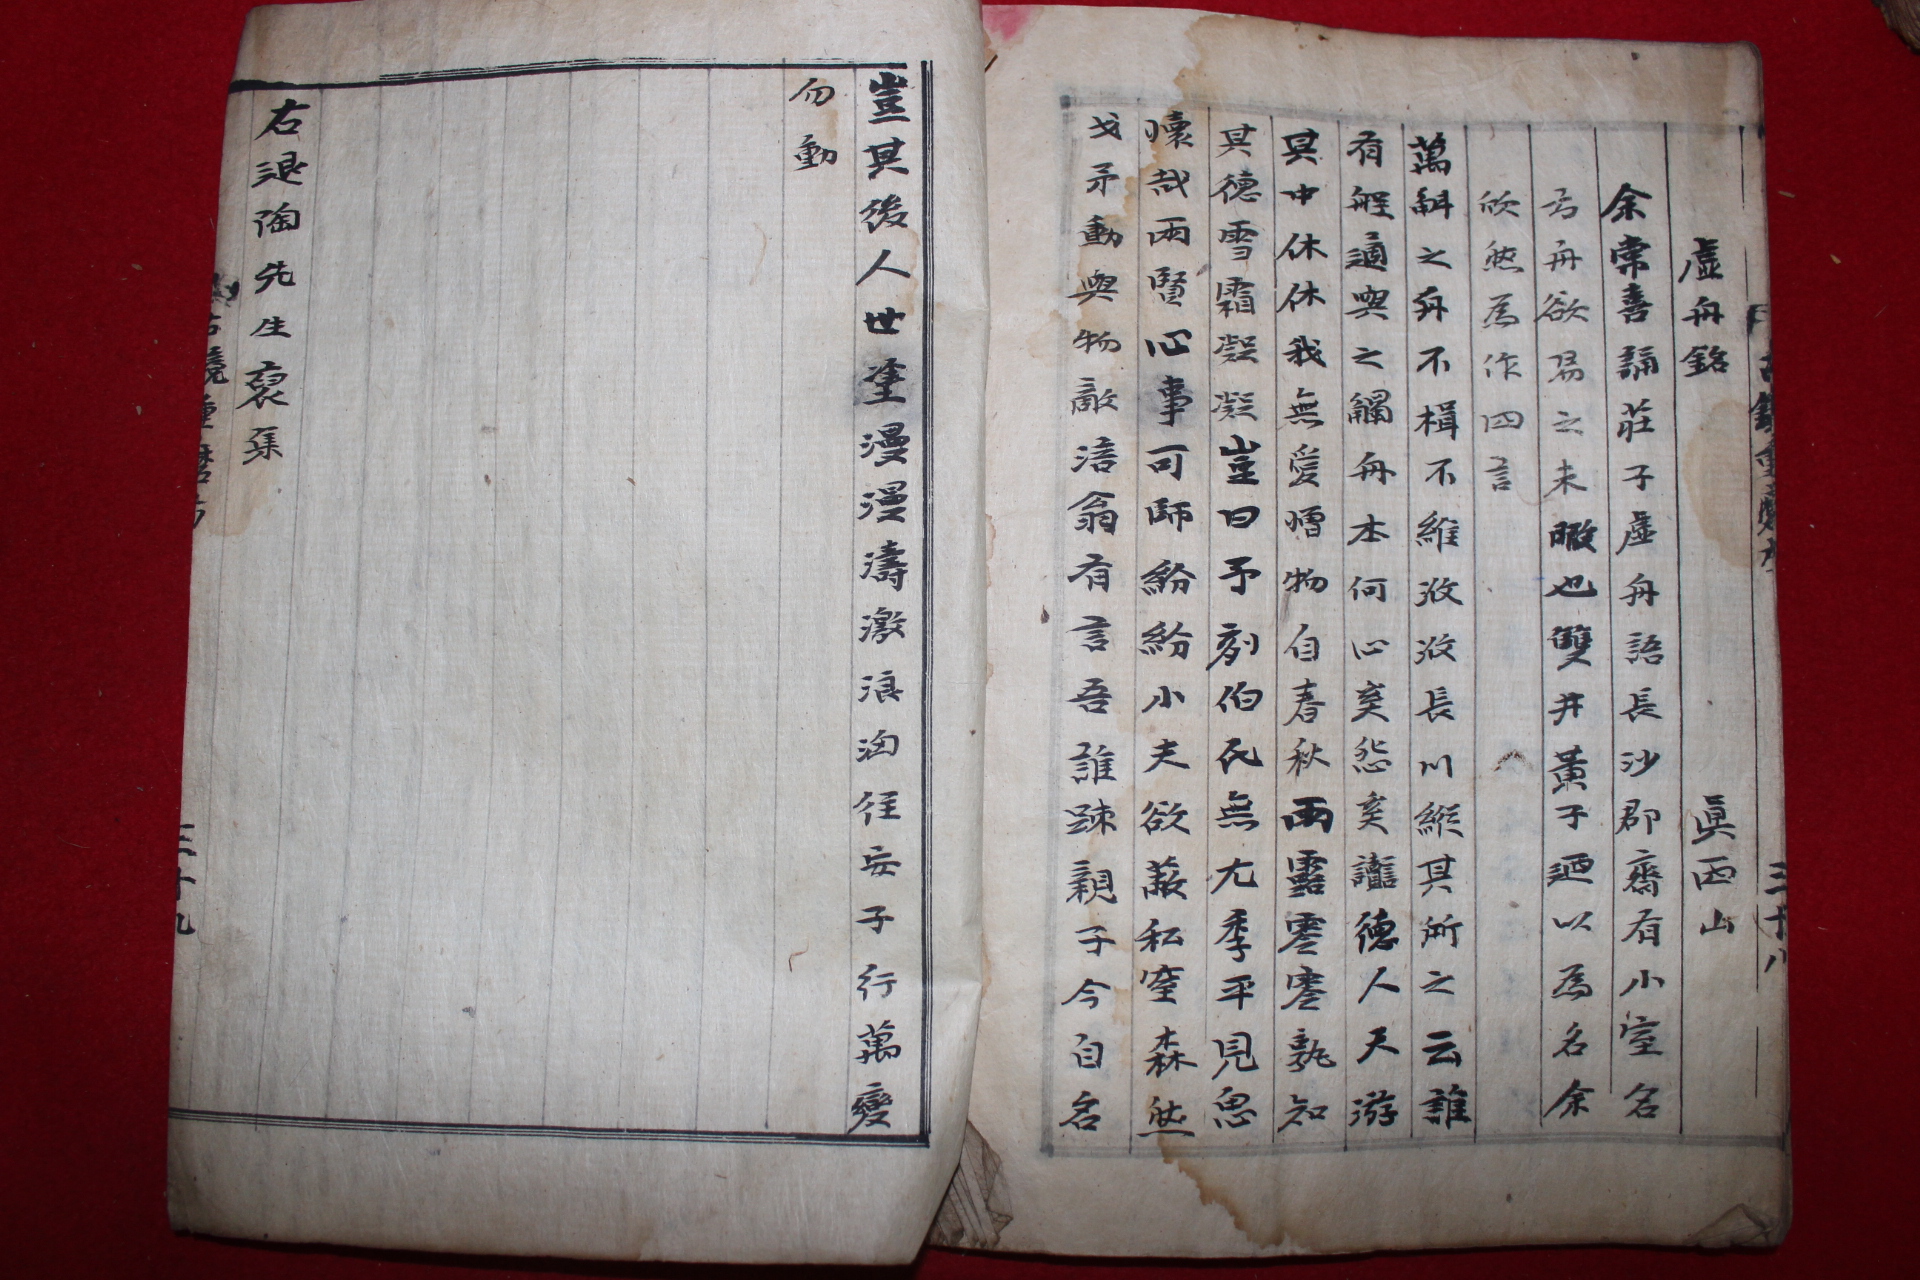 虛舟銘 眞西山
余常喜誦莊子虛舟語長沙郡齋有小室名
舟欲易之未暇也雙井黃子迺以為名余
欣然為作四言
萬斛之舟不楫不維汎汎長川縱其所之云誰
有程適與之觸舟本何心奚怨奚讟德人天游
其中休休我無愛憎物自春秋雨露零零孰知
其德雪霜凝凝豈曰予刻伯氏無尤季平見思
懷哉兩賢心事可師紛紛小夫欲蔽私窒森然
戈矛動與物敵涪翁有言吾誰疎親子今自名
豈其後人世塗漫漫濤激浪洶往安子行萬變
勿動
右退陶先生裒集
三十八
三十九